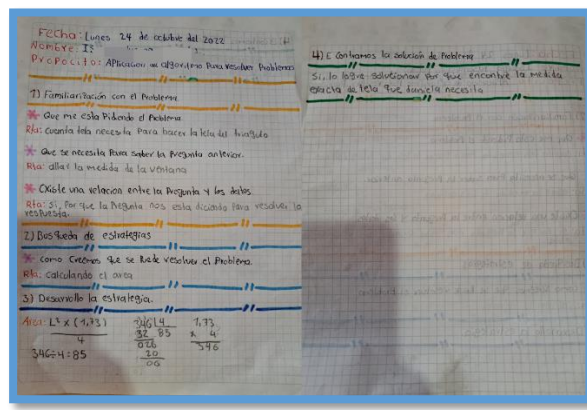 Fecha: Lunes 24 de octubre del 2022
Nombre: Is
Propocito: Aplicacion un algoritmo Para resolver Problemas
1) Familiarización con el Problema
* Que me esta Pidiendo el Problema
Rta: Cuanta tela necesita Para hacer la tela del triangulo
* Que se necesita Para saber la Pregunta anterior.
Rta: allar la medida de la ventana
* Existe una relacion entre la Pregunta y los datos.
Rta: Si, Por que la Pregunta nos esta diciendo Para resolver la
respuesta.
2) Busqueda de estrategias
* como Creemos que se Puede resolver el Problema.
Rta: calculando el area
3) Desarrollo la estrategia.
Area: L² x (1,73)
4
346÷4=85
346 4
32 85
026
20
06
1,73
x 4
346
4) Encontramos la solución de Problema
Si, lo logre solucionar Por que encontre la medida
exacta de tela que daniela necesita